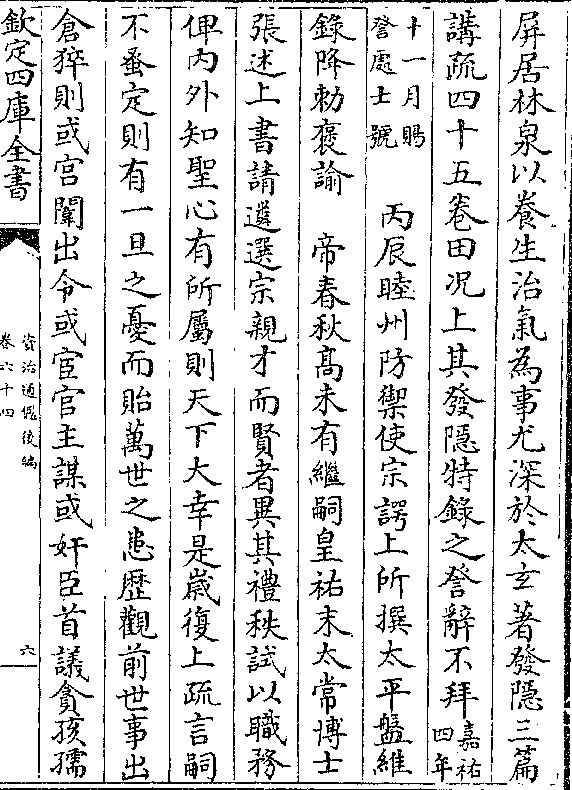 屏居林泉以養生治氣為事尤深於太玄著發隱三篇
講疏四十五卷田况上其發隱特錄之詧辭不拜嘉祐四年
十一月賜詧處士號　丙辰睦州防禦使宗諤上所撰太平盤維
錄降勅褒諭　帝春秋髙未有繼嗣皇祐末太常博士
張述上書請遴選宗親才而賢者異其禮秩試以職務
俾内外知聖心有所屬則天下大幸是嵗復上疏言嗣
不蚤定則有一旦之憂而貽萬世之患歴觀前世事出
倉猝則或宫闈出令或宦官主謀或奸臣首議貪孩孺
欽定四庫全書
資治通鑑後編
卷六十四
六